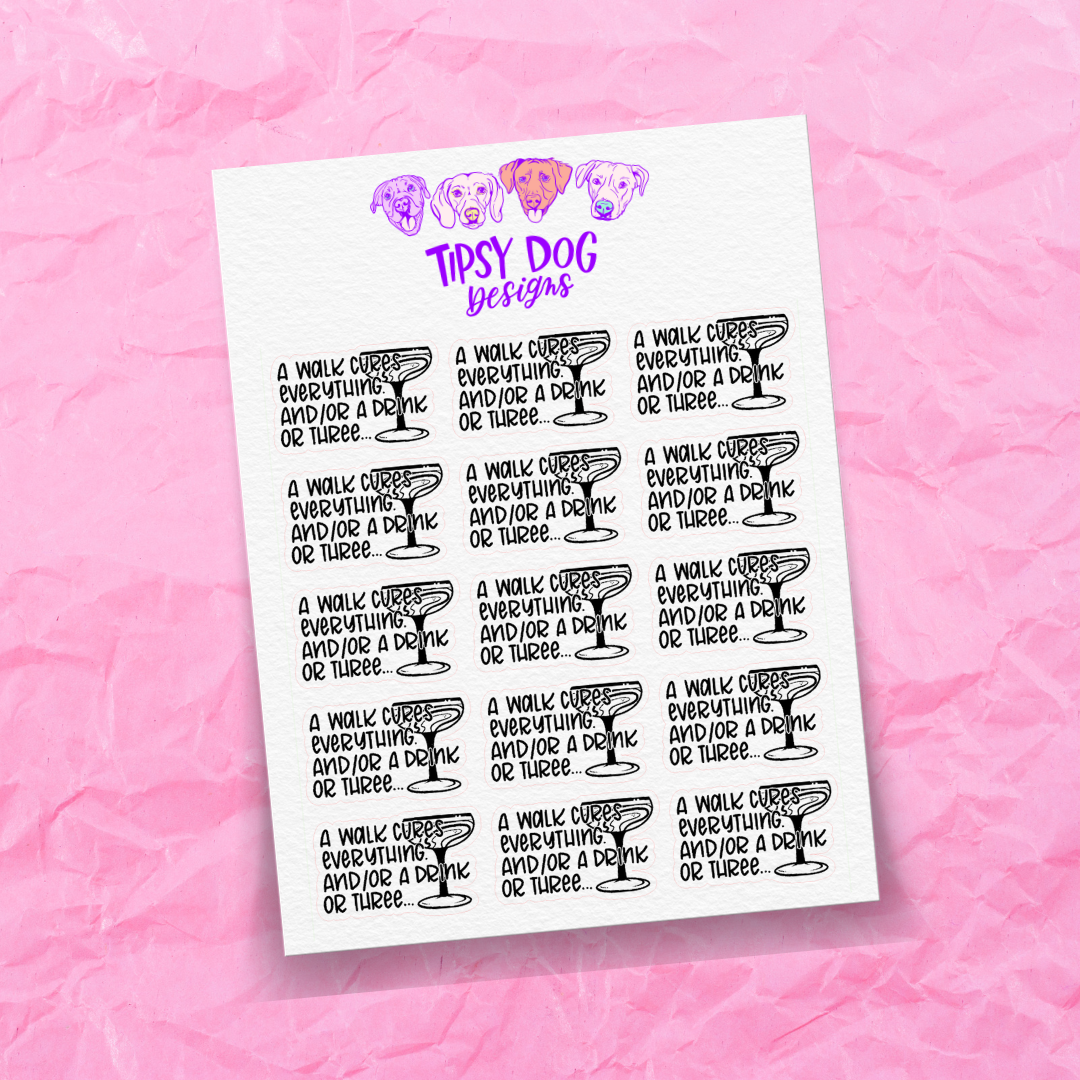 TIPSY DOG
Designs
A WALK CURES
EVERYTHING.
AND/OR A DRINK
OR THREE...
A WALK CURES
EVERYTHING.
AND/OR A DRINK
OR THREE...
A WALK CURES
EVERYTHING.
AND/OR A DRINK
OR THREE...
A WALK CURES
EVERYTHING.
AND/OR A DRINK
OR THREE...
A WALK CURES
EVERYTHING.
AND/OR A DRINK
OR THREE...
A WALK CURES
EVERYTHING.
AND/OR A DRINK
OR THREE...
A WALK CURES
EVERYTHING.
AND/OR A DRINK
OR THREE...
A WALK CURES
EVERYTHING.
AND/OR A DRINK
OR THREE...
A WALK CURES
EVERYTHING.
AND/OR A DRINK
OR THREE...
A WALK CURES
EVERYTHING.
AND/OR A DRINK
OR THREE...
A WALK CURES
EVERYTHING.
AND/OR A DRINK
OR THREE...
A WALK CURES
EVERYTHING.
AND/OR A DRINK
OR THREE...
A WALK CURES
EVERYTHING.
AND/OR A DRINK
OR THREE...
A WALK CURES
EVERYTHING.
AND/OR A DRINK
OR THREE...
A WALK CURES
EVERYTHING.
AND/OR A DRINK
OR THREE...